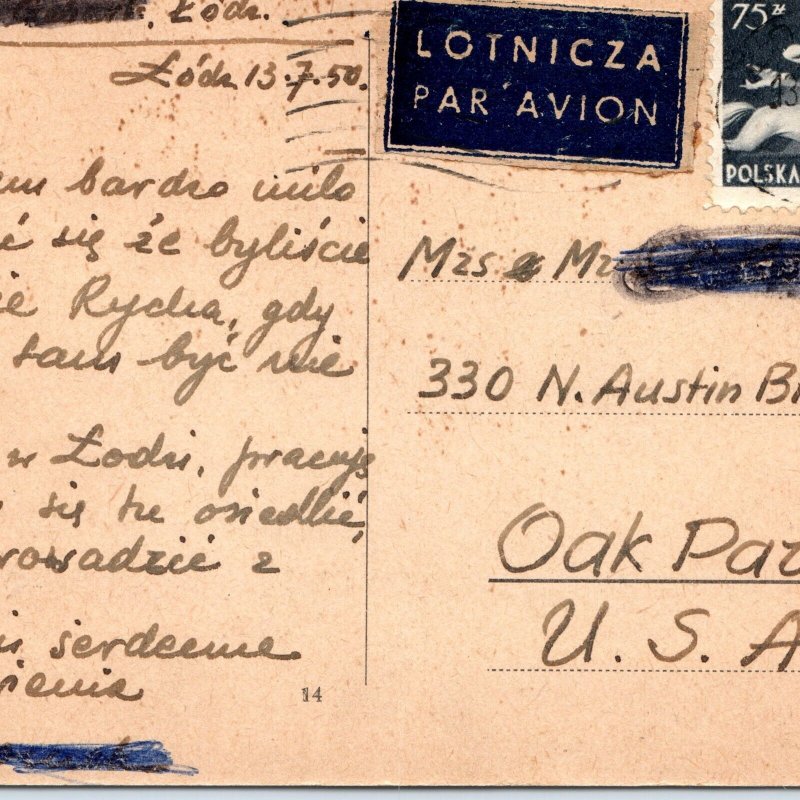 Łódź.
Łódź 13.7.50.
bardzo miło
się że byliście
Rycha, gdy
sam być nie
w Łodzi, pracuję
się tu osiedlić,
rowadzić z
serdeczne
ienia
14
LOTNICZA
PAR AVION
75 zł
13
POLSKA
Mrs & Mr
330 N. Austin Bl
Oak Par
U. S. A